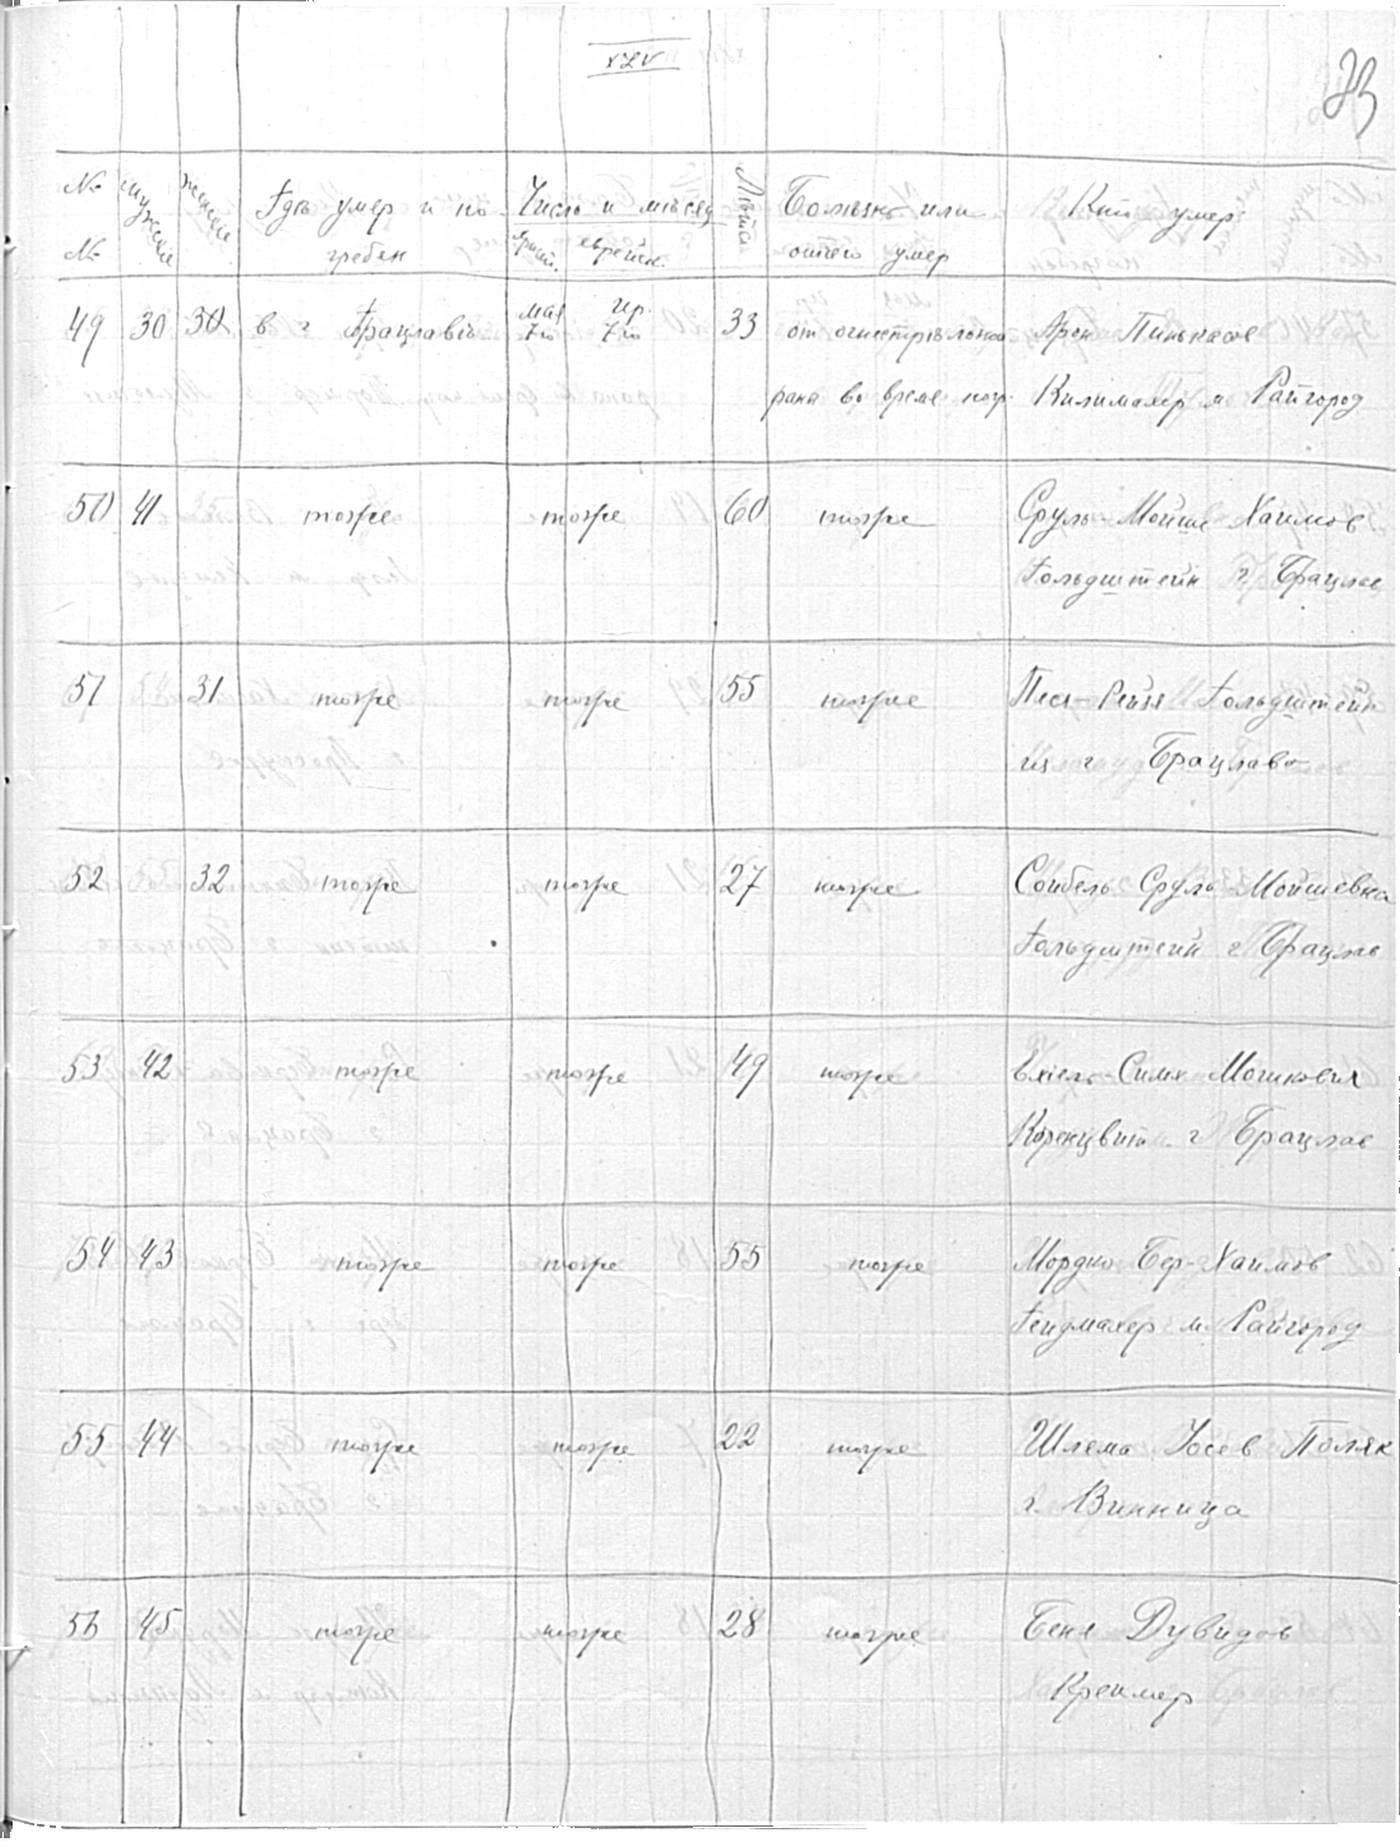 XLV
73
№ № мужскіе женскіе Гдѣ умер и по- Число и мѣсяц Лѣта Болѣзнь или Кто умер
гребен христ. еврейск. отчего умер
49 30 30 в г Брацлавѣ мая 7го ир. 7го 33 от огнестрѣльной Арон Пинькасов
рана во время погр. Килимахер м Райгород
50 41 тоже тоже 60 тоже Сруль-Мойше Хаимов
Гольдштейн г Брацлав
51 31 тоже тоже 55 тоже Песя-Рейзя Гольдштейн
из г Брацлава
52 32 тоже тоже 27 тоже Сойбель Сруль-Мойшевна
Гольдштейн г Брацлав
53 42 тоже тоже 49 тоже Ехіель-Симх Мошкович
Коренцвит г Брацлав
54 43 тоже тоже 55 тоже Мордко Бер-Хаимов
Гендмахер м. Райгород
55 44 тоже тоже 22 тоже Шлема Іосев Поляк
г. Винница
56 45 тоже тоже 28 тоже Беня Дувидов
Кремер